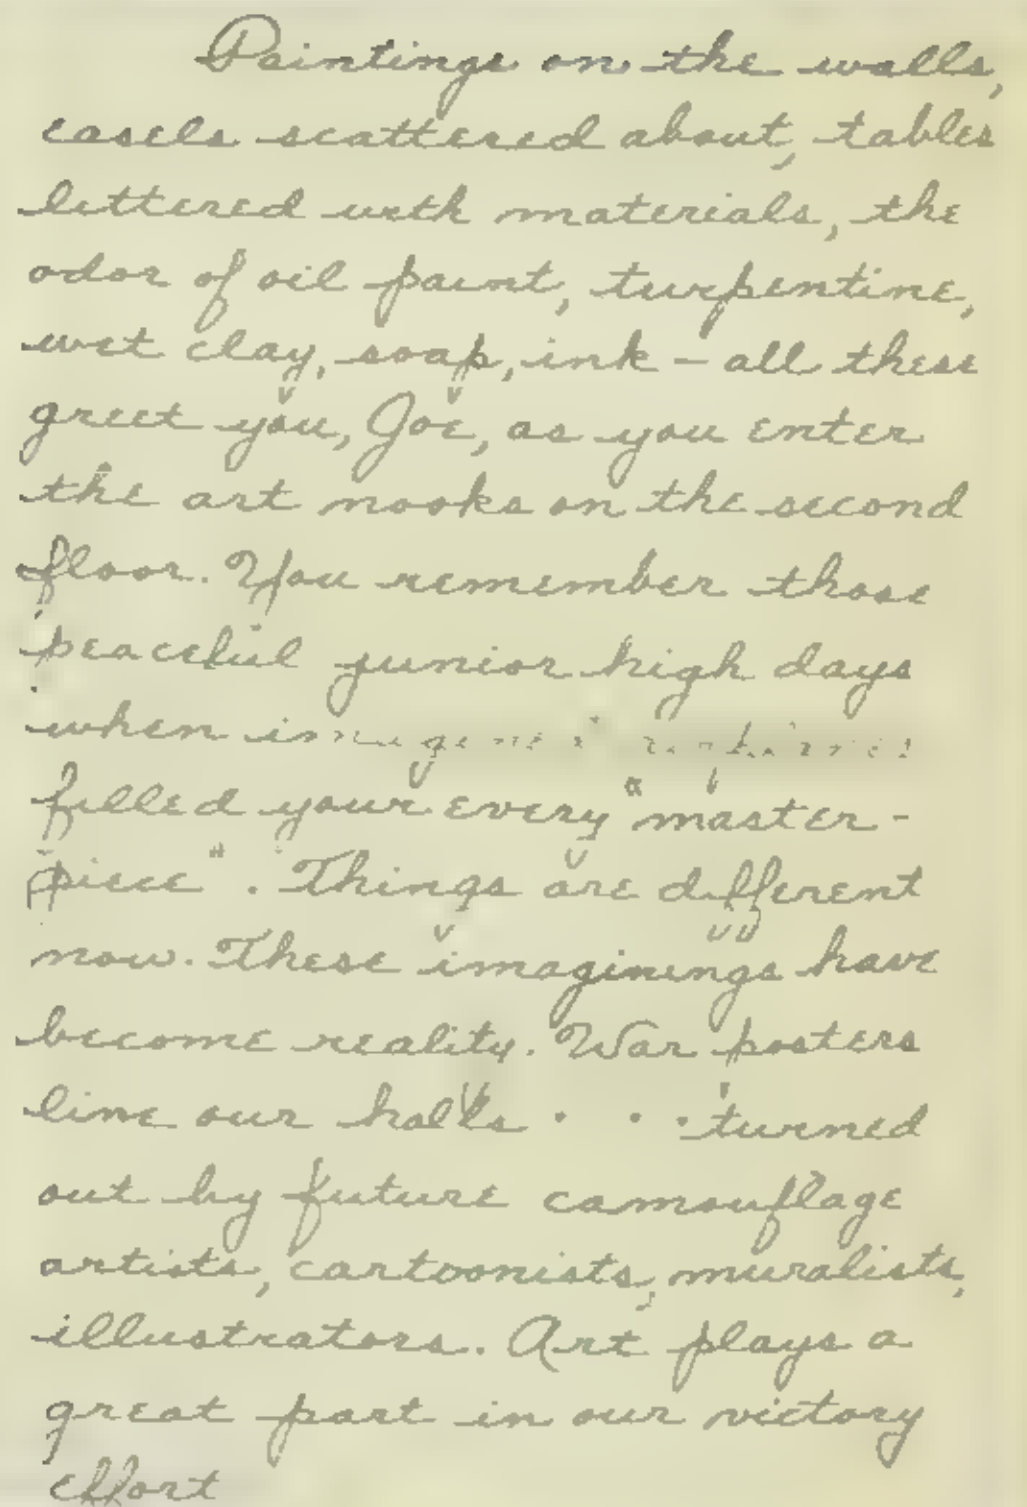 Paintings on the walls,
easels scattered about, tables
littered with materials, the
odor of oil paint, turpentine,
wet clay, soap, ink - all these
greet you, Joe, as you enter
the art nooks on the second
floor. You remember those
peaceful junior high days
when
filled your every "master-
piece". Things are different
now. These imaginings have
become reality. War posters
line our halls . . . turned
out by future camouflage
artists, cartoonists, muralists,
illustrators. Art plays a
great part in our victory
effort